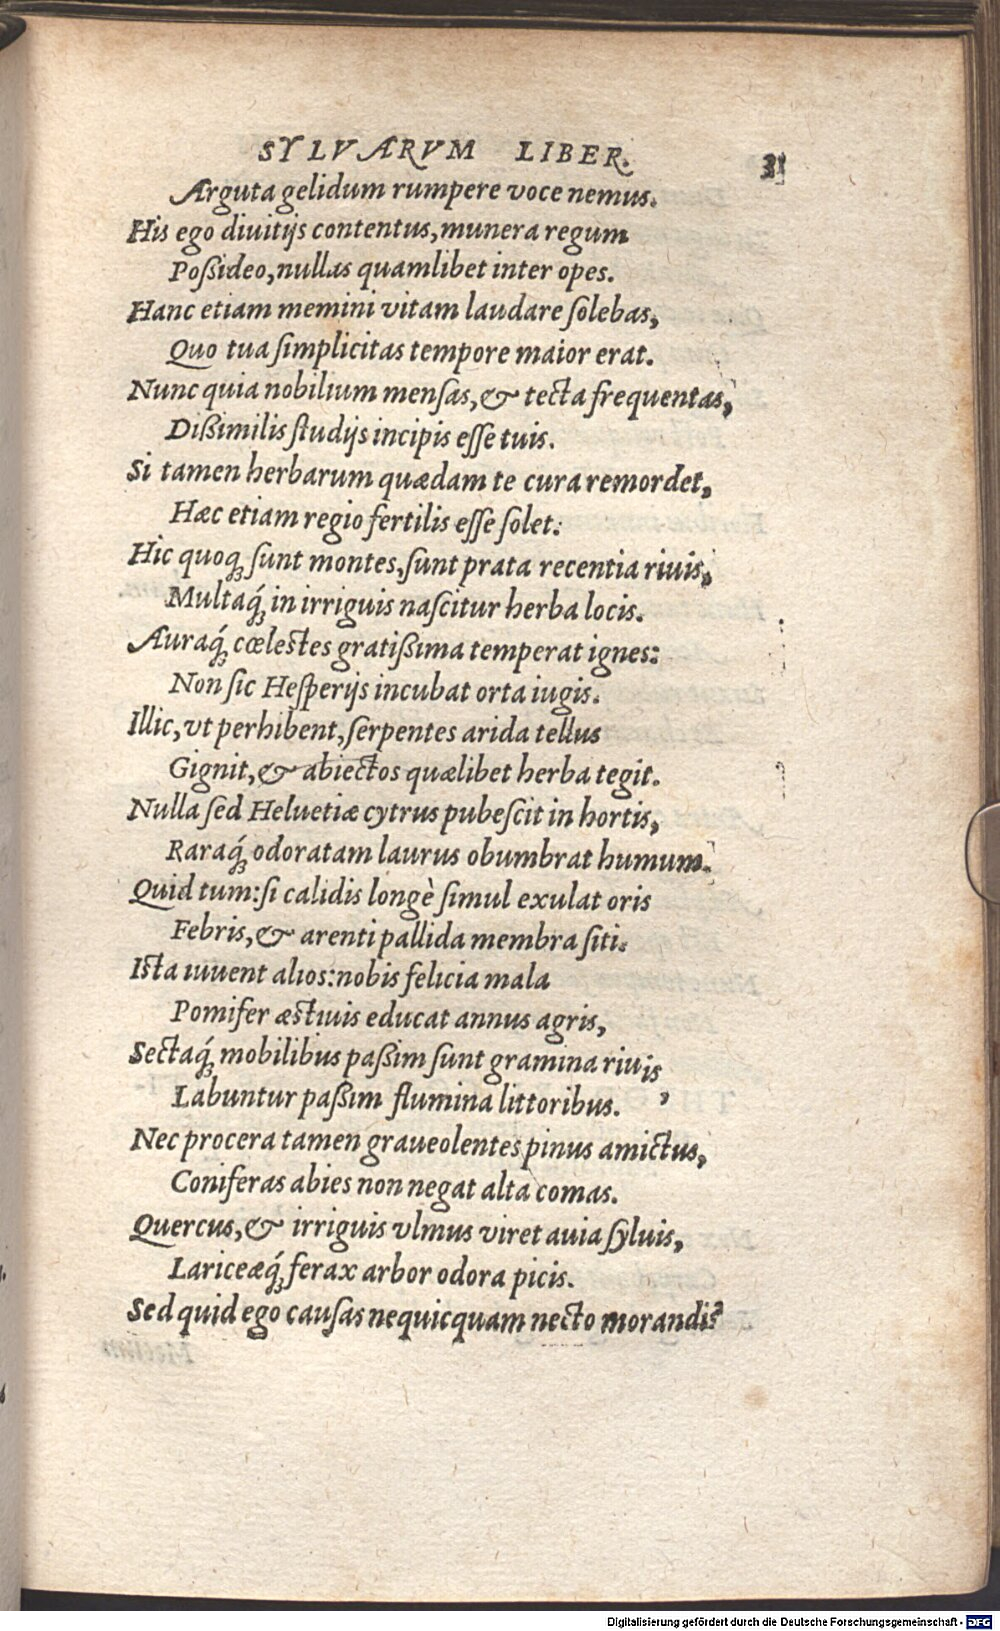 SYLVARVM LIBER. 31
Arguta gelidum rumpere voce nemus.
His ego diuitijs contentus, munera regum
Poßideo, nullas quamlibet inter opes.
Hanc etiam memini vitam laudare ſolebas,
Quo tua ſimplicitas tempore maior erat.
Nunc quia nobilium menſas, & tecta frequentas,
Dißimilis ſtudijs incipis eſſe tuis.
Si tamen herbarum quædam te cura remordet,
Hæc etiam regio fertilis eſſe ſolet:
Hic quoq; ſunt montes, ſunt prata recentia riuis,
Multaq́; in irriguis naſcitur herba locis.
Auraq́; cœlestes gratißima temperat ignes:
Non ſic Heſperijs incubat orta iugis.
Illic, vt perhibent, ſerpentes arida tellus
Gignit, & abiectos quælibet herba tegit.
Nulla ſed Heluetiæ cytrus pubeſcit in hortis,
Raraq́; odoratam laurus obumbrat humum.
Quid tum: ſi calidis longè ſimul exulat oris
Febris, & arenti pallida membra ſiti.
Ista iuuent alios: nobis felicia mala
Pomifer æstiuis educat annus agris,
Sectaq́; mobilibus paßim ſunt gramina riuis,
Labuntur paßim flumina littoribus.
Nec procera tamen graueolentes pinus amictus,
Coniferas abies non negat alta comas.
Quercus, & irriguis vlmus viret auia ſyluis,
Lariceæq́; ferax arbor odora picis.
Sed quid ego cauſas nequicquam necto morandi?
Digitalisierung gefördert durch die Deutsche Forschungsgemeinschaft - DFG